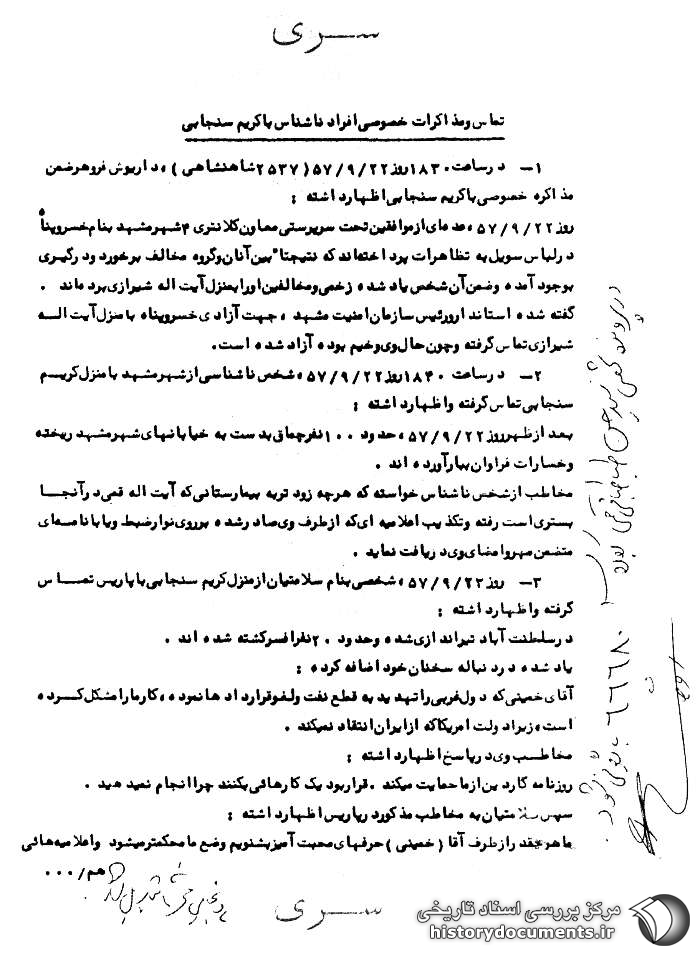 سری
تماس ومذاکرات خصوصی افراد ناشناس باکریم سنجابی
۱- درساعت ۱۸۳۰ روز ۵۷/۹/۲۲ (۲۵۳۷ شاهنشاهی)، داریوش فروهرضمن
مذاکره خصوصی باکریم سنجابی اظهارداشته :
روز ۵۷/۹/۲۲، عده ای ازموافقین تحت سرپرستی معاون کلانتری ۴ شهرمشهد بنام خسروپناه
درلباس سویل به تظاهرات پرداخته اند که نتیجتا" بین آنان وگروه مخالف برخورد ودرگیری
بوجود آمده وضمن آن شخص یاد شده زخمی ومخالفین اورا بمنزل آیت اله شیرازی برده اند .
گفته شده استاندار ورئیس سازمان امنیت مشهد ، جهت آزادی خسروپناه بامنزل آیت الـه
شیرازی تماس گرفته وچون حال وی وخیم بوده آزاد شده است.
۲- درساعت ۱۸۴۰ روز ۵۷/۹/۲۲، شخص ناشناسی ازشهرمشهد بامنزل کریـم
سنجابی تماس گرفته واظهارداشته :
بعد ازظهر روز ۵۷/۹/۲۲، حدود ۱۰۰ نفرچماق بدست به خیابانهای شهرمشهد ریخته
وخسارات فراوان ببارآورده اند .
مخاطب ازشخص ناشناس خواسته که هرچه زود تربه بیمارستانی که آیت اله قمی درآنجـا
بستری است رفته وتکذیب اعلامیه ای که ازطرف وی صادرشده برروی نوارضبط ویا با نامه ای
متضمن مهروامضای وی دریافت نماید .
۳- روز ۵۷/۹/۲۲، شخصی بنام سلامتیان ازمنزل کریم سنجابی باپاریس تمـاس
گرفته واظهارداشته :
درسلطنت آباد تیراندازی شده وحدود ۲۰ نفرافسرکشته شده اند .
یاد شده دردنباله سخنان خود اضافه کرده :
آقای خمینی که دول غربی راتهدید به قطع نفت ولغوقراردادها نموده، کارماراشکل کـرده
است، زیرادولت امریکاکه ازایران انتقاد نمیکند .
مخاطـب وی درپاسخ اظهارداشته :
روزنامه گاردین ازماحمایت میکند . قراربود یک کارهائی بکنند چرا انجام نمیدهید .
سپس سلامتیان به مخاطب مذکوردرپاریس اظهارداشته :
ماهرچقدر ازطرف آقا (خمینی) حرفهای محبت آمیزبشنویم وضع مامحکمترمیشود واعلامیه هائی
هم/۰۰۰
سری
مرکز بررسی اسناد تاریخی
historydocuments.ir